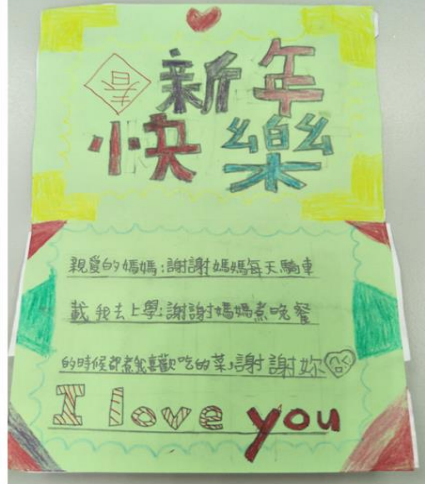 春 新年
快樂
親愛的媽媽:謝謝媽媽每天騎車
載我去上學,謝謝媽媽煮晚餐
的時候都煮我喜歡吃的菜,謝謝妳
I love you